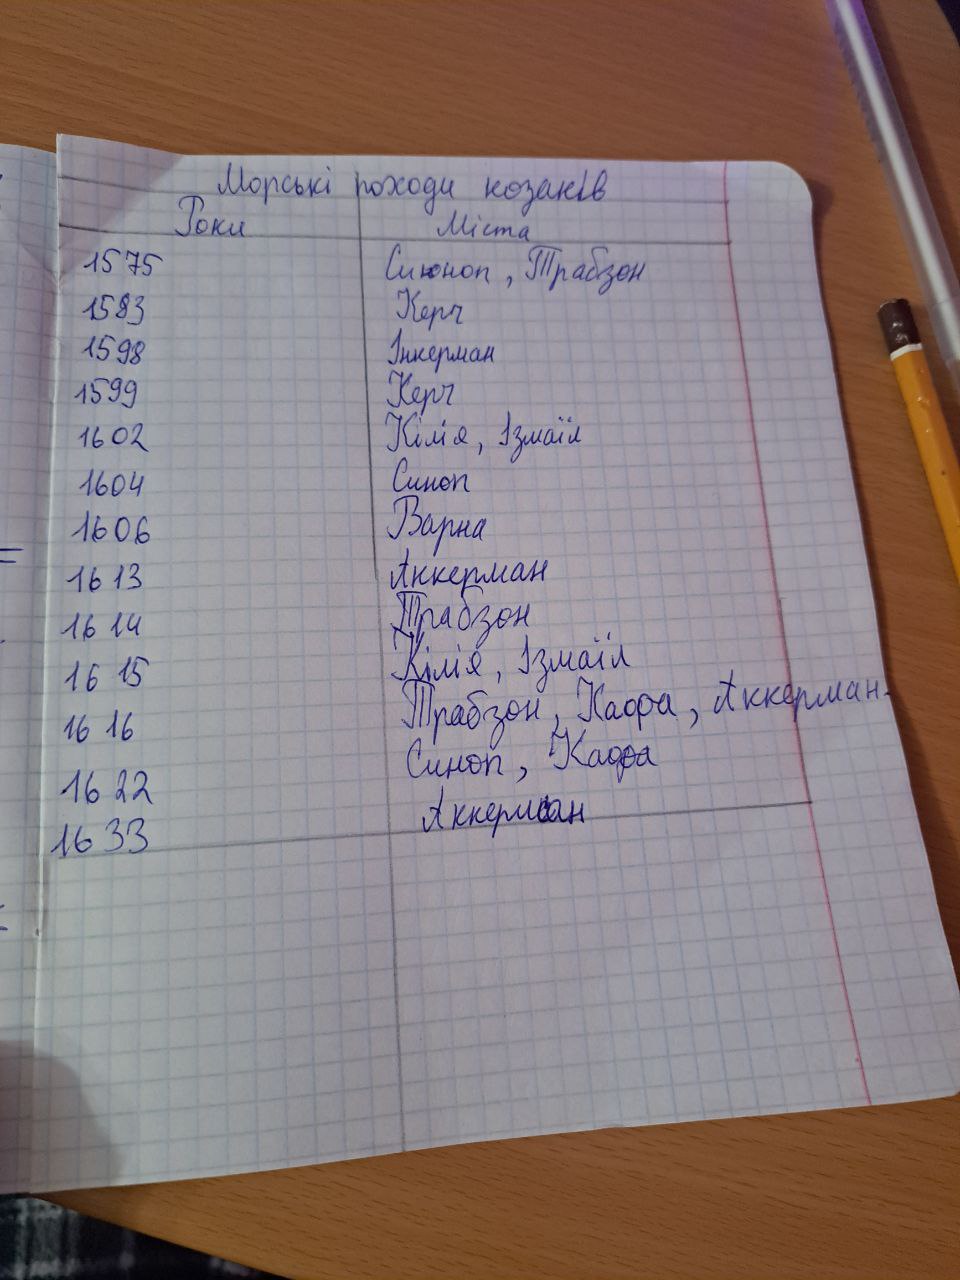 Морські походи козаків
Роки Міста
1575 Синоп, Трабзон
1583 Керч
1598 Інкерман
1599 Керч
1602 Кілія, Ізмаїл
1604 Синоп
1606 Варна
1613 Аккерман
1614 Трабзон
1615 Кілія, Ізмаїл
1616 Трабзон, Кафа, Аккерман
1622 Синоп, Кафа
1633 Аккерман